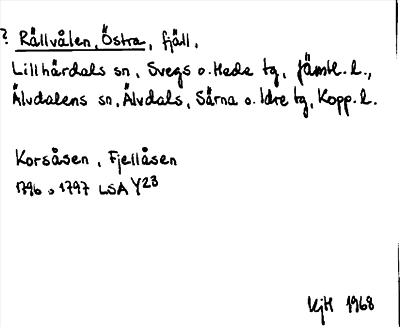 ? Rällvålen, Östra, fjäll.
Lillhärdals sn, Svegs o. Hede tg, Jämtl. l.,
Älvdalens sn, Älvdals, Särna o. Idre tg, Kopp. l.
Korsåsen, Fjellåsen
1796, 1797 LSA Y23
KjH 1968